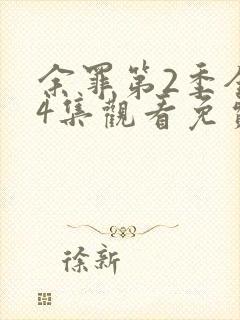 余罪第2季全
4集觀看免費
徐新